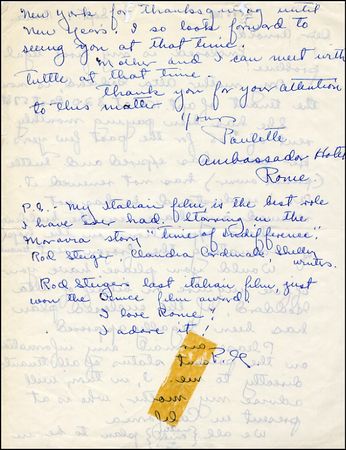 New York for Thanksgiving until
New Years. I so look forward to
seeing you at that time.
Mother and I can meet with
Tuttle at that time.
Thank you for your attention
to this matter
Yours
Paulette
Ambassador Hotel
Rome.
P.S. - My Italian film is the best role
I have ever had. Starring in the
Moravia story "Time of Indifference."
Rod Steiger, Claudia Cardinale, Shelley
Winters.
Rod Steigers last Italian film, just
won the film award.
I love Rome!
I adore it!